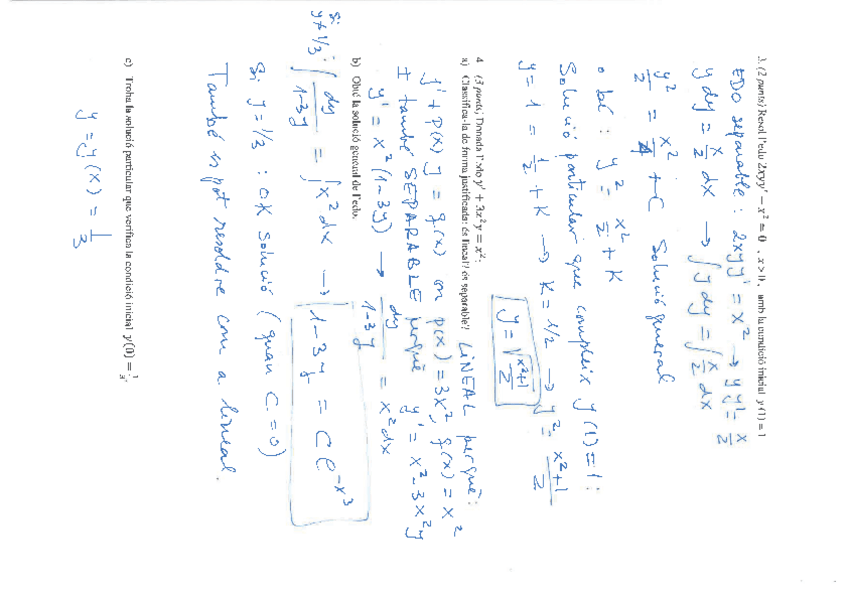 3. (2 punts) Resol l'edo 2xyy' − x² = 0 , x > 0, amb la condició inicial y(1) = 1
EDO separable : 2xyy' = x² → yy' = x/2
y dy = x/2 dx → ∫ y dy = ∫ x/2 dx
y²/2 = x²/4 + C Solució general
o bé : y² = x²/2 + K
Solució particular que compleix y(1) = 1 :
y = 1 = 1/2 + K → K = 1/2 → y² = (x²+1)/2
y = √((x²+1)/2)
4 (3 punts) Donada l'edo y' + 3x²y = x² :
a) Classifica-la de forma justificada: és lineal? és separable? LINEAL perquè :
y' + p(x) y = q(x) on p(x) = 3x², q(x) = x²
I també SEPARABLE perquè y' = x² - 3x²y
y' = x² (1-3y) → dy/(1-3y) = x² dx
b) Obté la solució general de l'edo.
Si y ≠ 1/3 : ∫ dy/(1-3y) = ∫ x² dx → 1-3y = C e^(-x³)
Si y = 1/3 : OK Solució (quan C = 0)
També es pot resoldre com a lineal.
c) Troba la solució particular que verifica la condició inicial y(0) = 1/3.
y = y(x) = 1/3